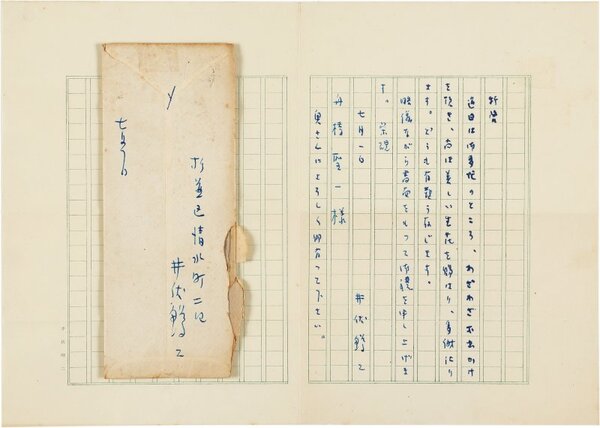 拝啓
過日は御多忙のところ、わざわざお出かけ
を頂き、尚ほ美しい生花を賜はり、多謝
ます。どうも有難うございます。
略儀ながら書面をもつて御禮を申し上げま
す。
七月一日
井伏鱒二
舟橋聖一様
奥さんによろしく仰有つて下さい。
〆
杉並区清水町
井伏鱒二
七月一日